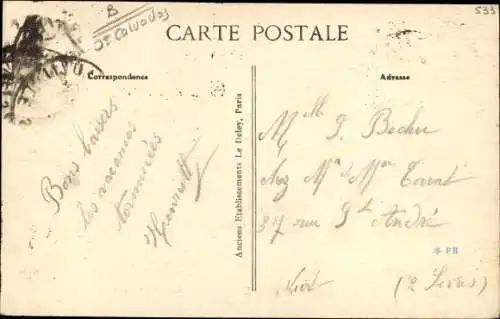 B
Jt Calvados
533
CARTE POSTALE
Correspondance
Adresse
Bons baisers
les vacances
terminées
Henriette
Anciens Etablissements Le Deley, Paris
Mlle J. Bechu
chez Mr et Mme
37 rue St André
* PB
Niort (2 Sèvres)